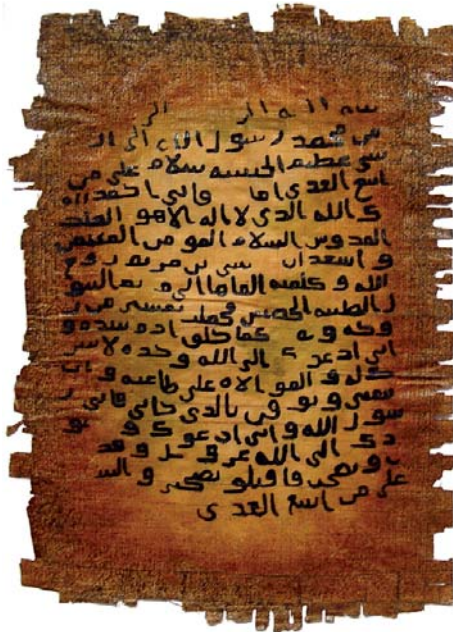 بسم الله الر الر
من محمد رسول الله الى الن
شى عظيم الحبشه سلام على من
اتبع الهدى اما فانى احمد
ك الله الذى لا اله الا هو الملك
القدوس السلام المومن المهيمن
و اشهد ان سى بن مريم روح
الله و كلمته القاها الى مريم البتو
ل الطيبه الحصينه فحملت بعيسى من ر
وحه و كما خلق ادم بيده و
انى ادعوك الى الله وحده لا شر
يك له و الموالاه على طاعته و ان
تتبعنى و توقن بالذى جانى فانى ر
سول الله و انى ادعوك و جنو
دك الى الله عز و جل و قد
و نصحت فاقبلو نصحى و السـ
على من اتبع الهدى